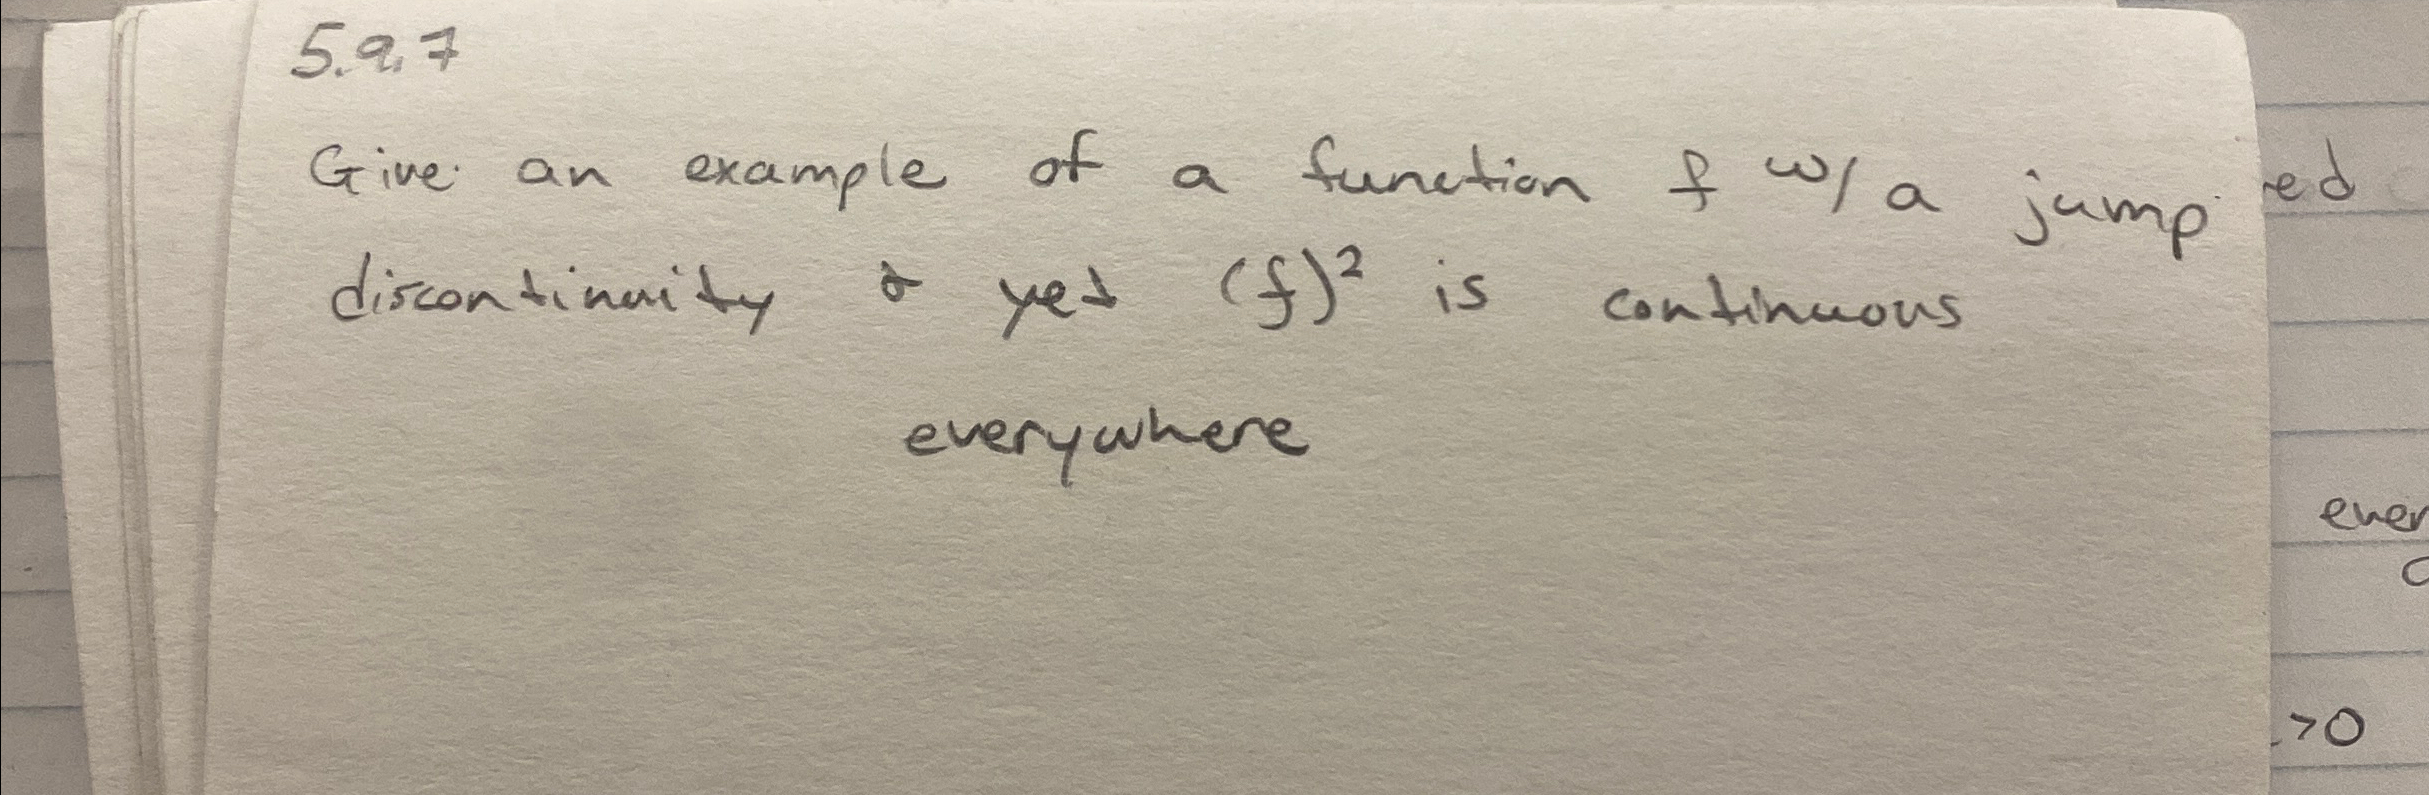 5.9.7
Give an example of a function f w/ a jump
discontinuity & yet (f)² is continuous
everywhere
ed
ever
>0